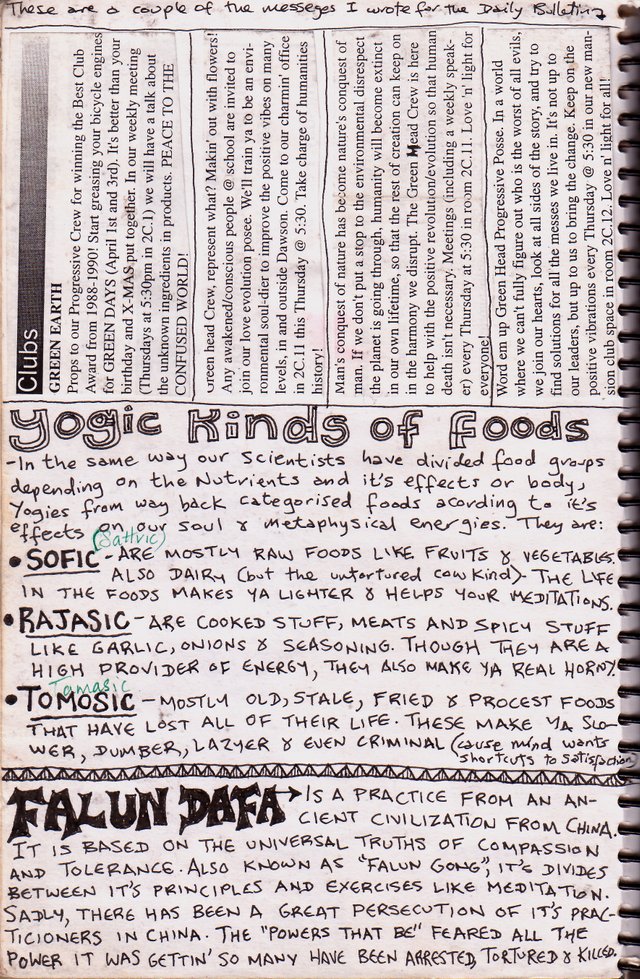 These are a couple of the messeges I wrote for the Daily Bulleting
Clubs
GREEN EARTH
Props to our Progressive Crew for winning the Best Club
Award from 1988-1990! Start greasing your bicycle engines
for GREEN DAYS (April 1st and 3rd). It's better than your
birthday and X-MAS put together. In our weekly meeting
(Thursdays at 5:30pm in 2C.1) we will have a talk about
the unknown ingredients in products. PEACE TO THE
CONFUSED WORLD!
Green head Crew, represent what? Makin' out with flowers!
Any awakened/conscious people @ school are invited to
join our love evolution posee. We'll train ya to be an envi-
ronmental soul-dier to improve the positive vibes on many
levels, in and outside Dawson. Come to our charmin' office
in 2C.11 this Thursday @ 5:30. Take charge of humanities
history!
Man's conquest of nature has become nature's conquest of
man. If we don't put a stop to the environmental disrespect
the planet is going through, humanity will become extinct
in our own lifetime, so that the rest of creation can keep on
in the harmony we disrupt. The Green Head Crew is here
to help with the positive revolution/evolution so that human
death isn't necessary. Meetings (including a weekly speak-
er) every Thursday at 5:30 in room 2C.11. Love 'n' light for
everyone!
Word em up Green Head Progressive Posse. In a world
where we can't fully figure out who is the worst of all evils,
we join our hearts, look at all sides of the story, and try to
find solutions for all the messes we live in. It's not up to
our leaders, but up to us to bring the change. Keep on the
positive vibrations every Thursday @ 5:30 in our new man-
sion club space in room 2C.12. Love n' light for all!
Yogic Kinds of Foods
-In the same way our Scientists have divided food groups
depending on the Nutrients and it's effects or body,
Yogies from way back categorised foods acording to it's
effects on our soul & metaphysical energies. They are:
(Sattvic)
• SOFIC - ARE MOSTLY RAW FOODS LIKE FRUITS & VEGETABLES.
ALSO DAIRY (but the untortured cow kind). THE LIFE
IN THE FOODS MAKES YA LIGHTER & HELPS YOUR MEDITATIONS.
• RAJASIC - ARE COOKED STUFF, MEATS AND SPICY STUFF
LIKE GARLIC, ONIONS & SEASONING. THOUGH THEY ARE A
HIGH PROVIDER OF ENERGY, THEY ALSO MAKE YA REAL HORNY.
Tamasic
• TOMOSIC - MOSTLY OLD, STALE, FRIED & PROCEST FOODS
THAT HAVE LOST ALL OF THEIR LIFE. THESE MAKE YA SLO-
WER, DUMBER, LAZYER & EVEN CRIMINAL (cause mind wants
shortcuts to satisfaction)
FALUN DAFA → IS A PRACTICE FROM AN AN-
CIENT CIVILIZATION FROM CHINA.
IT IS BASED ON THE UNIVERSAL TRUTHS OF COMPASSION
AND TOLERANCE. ALSO KNOWN AS "FALUN GONG", IT'S DIVIDES
BETWEEN IT'S PRINCIPLES AND EXERCISES LIKE MEDITATION.
SADLY, THERE HAS BEEN A GREAT PERSECUTION OF IT'S PRAC-
TICIONERS IN CHINA. THE "POWERS THAT BE" FEARED ALL THE
POWER IT WAS GETTIN' SO MANY HAVE BEEN ARRESTED, TORTURED & KILLED.